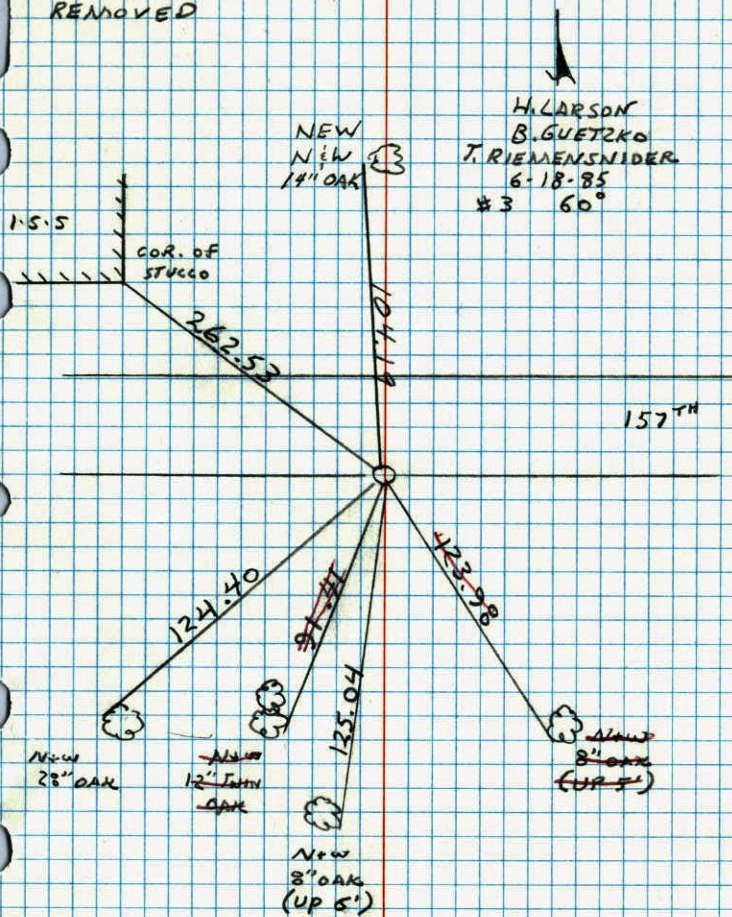 REMOVED
H. LARSON
B. GUETZKO
T. RIEMENSNIDER
6-18-85
#3 60°
NEW
N&W
14" OAK
1.5.5
COR. OF
STUCCO
262.53
104.18
157TH
124.40
91.41
125.04
123.98
N+W
28" OAK
N+W
12" TWIN
OAK
N+W
8" OAK
(UP 5')
N+W
8" OAK
(UP 6')